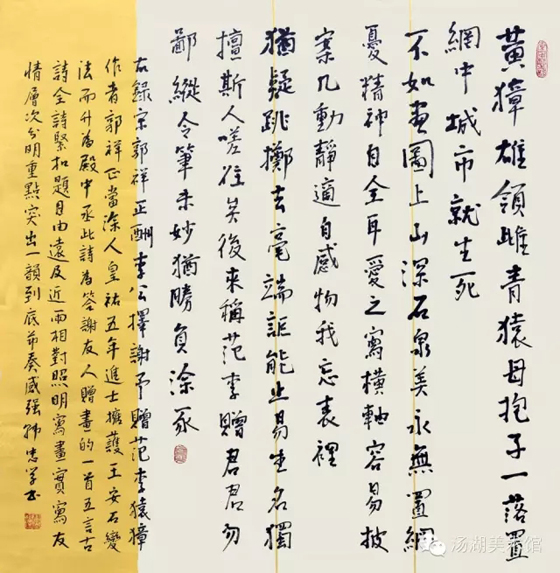 黃獐雄領雌青猿母抱子一落罝
網中城市就生死
不如畫圖上山深石泉美永無罝網
憂精神自全耳愛之寫橫軸容易披
案几動靜適自感物我忘表裡
猶疑跳擲去毫端詎能止易生名獨
擅斯人嗟往矣後來稱范李贈君君勿
鄙縱令筆未妙猶勝負塗豕
右錄宋郭祥正酬李公擇謝予贈范李猿獐
作者郭祥正當涂人皇祐五年進士擁護王安石變
法而升為殿中丞此詩為答謝友人贈畫的一首五言古
詩全詩緊扣題目由遠及近兩相對照明寫畫實寫友
情層次分明重點突出一韻到底節奏感強 忠學书
汤湖美术馆